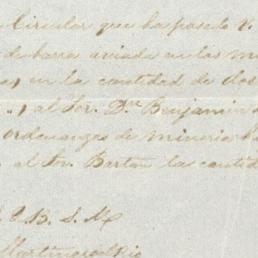 Circular que ha pasado V.
de barra aviada en las mi
en la cantidad de dos
al Sor. Dn. Benjamin
ordenanzas de mineria
al Sor. Barton la cantid
B. S. M.
Martinez del Rio